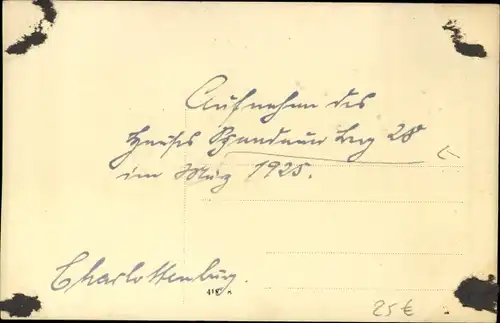 Aufnahme des
Hauses Spandauer Berg 28
im März 1925.
Charlottenburg.
25 €